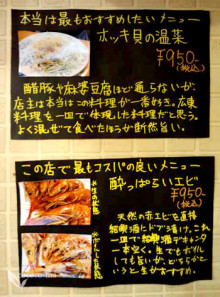 本当は最もおすすめしたいメニュー
ホッキ貝の温菜
¥950
(税込)
酢豚や麻婆豆腐ほど通らないが、
店主は本当はこの料理が一番好き。広東
料理を一皿で体現した料理だと思う。
よく混ぜて食べたほうが断然旨い。
この店で最もコスパの良いメニュー
酔っぱらいエビ
¥950
(税込)
天然の赤エビを直接
紹興酒にドブ漬け。これ
一皿で紹興酒デキャンタ
一本空く。生でもボイル
しても旨いが、どちらかと
いうと生がおすすめ。